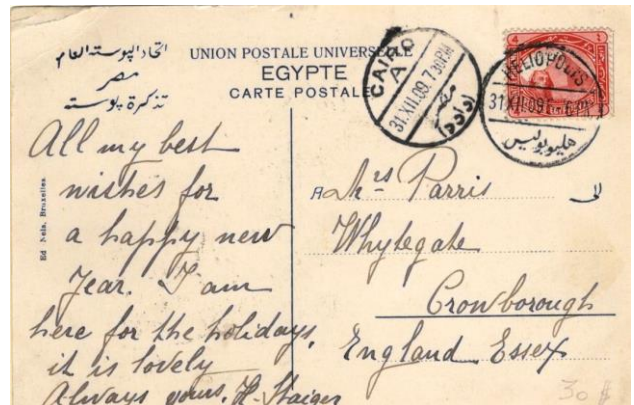 اتحاد البوسته العام
مصر
تذكرة بوسته
UNION POSTALE UNIVERSELLE
EGYPTE
CARTE POSTALE
CAIRO
A
31.XII.09.7 30PM
HELIOPOLIS
31XII.09 6
هليوبوليس
All my best
wishes for
a happy new
Year. I am
here for the holidays,
it is lovely
Always yours, H. Staiger
A Mrs Parris
الى
Whytegate
Crowborough
England Essex
Ed Nels, Bruxelles
30